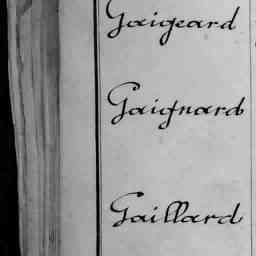 Gaigeard
Gaignard
Gaillard